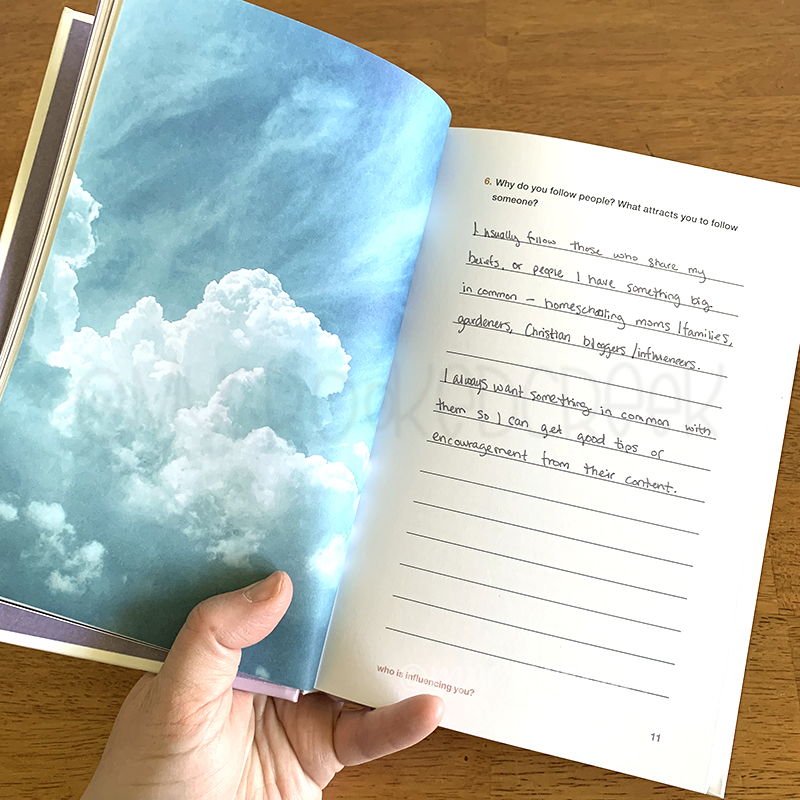 6. Why do you follow people? What attracts you to follow
someone?
I usually follow those who share my
beliefs, or people I have something big
in common – homeschooling moms/families,
gardeners, Christian bloggers/influencers.
I always want something in common with
them so I can get good tips or
encouragement from their content.
who is influencing you?
11